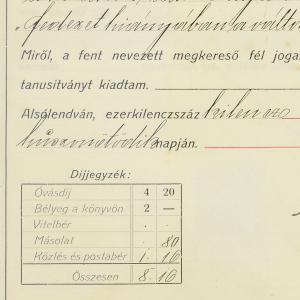 fedezet hiányában a vált
Miről, a fent nevezett megkereső fél joga
tanusítványt kiadtam.
Alsólendván, ezerkilenczszáz kilencz
huszonötödik napján.
Díjjegyzék:
Óvásdíj 4 20
Bélyeg a könyvön 2 —
Vitelbér . .
Másolat . 80
Közlés és postabér 1. 16
Összesen 8. 16